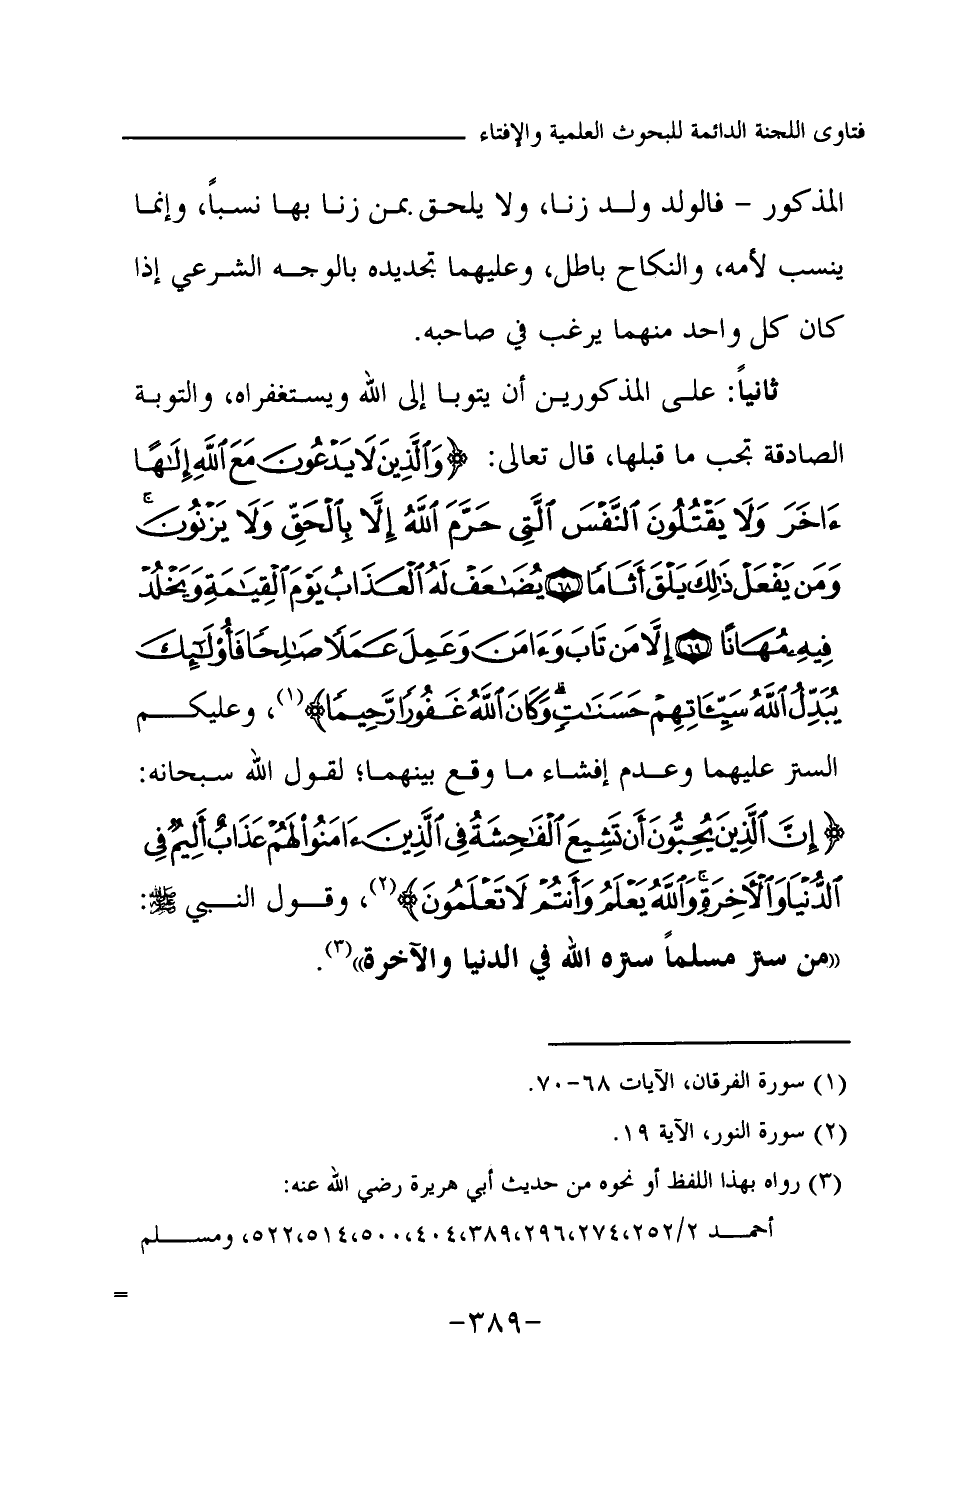 فتاوى اللجنة الدائمة للبحوث العلمية والإفتاء
المذكور - فالولد ولـد زنـا، ولا يلحـق بمـن زنـا بهـا نسبـاً، وإنمـا
ينسب لأمه، والنكاح باطل، وعليهما تجديده بالوجـه الشـرعي إذا
كان كل واحد منهما يرغب في صاحبه.
ثانياً: علـى المذكوريـن أن يتوبـا إلى الله ويسـتغفراه، والتوبـة
الصادقة تجب ما قبلها، قال تعالى: ﴿وَٱلَّذِينَ لَا يَدْعُونَ مَعَ ٱللَّهِ إِلَـٰهًا
ءَاخَرَ وَلَا يَقْتُلُونَ ٱلنَّفْسَ ٱلَّتِى حَرَّمَ ٱللَّهُ إِلَّا بِٱلْحَقِّ وَلَا يَزْنُونَ ۚ
وَمَن يَفْعَلْ ذَٰلِكَ يَلْقَ أَثَامًا ﴿٦٨﴾ يُضَـٰعَفْ لَهُ ٱلْعَذَابُ يَوْمَ ٱلْقِيَـٰمَةِ وَيَخْلُدْ
فِيهِۦ مُهَانًا ﴿٦٩﴾ إِلَّا مَن تَابَ وَءَامَنَ وَعَمِلَ عَمَلًا صَـٰلِحًا فَأُو۟لَـٰٓئِكَ
يُبَدِّلُ ٱللَّهُ سَيِّـَٔاتِهِمْ حَسَنَـٰتٍ ۗ وَكَانَ ٱللَّهُ غَفُورًا رَّحِيمًا﴾(١)، وعليكـــم
الستر عليهما وعـدم إفشـاء مـا وقـع بينهمـا؛ لقـول الله سبحانه:
﴿إِنَّ ٱلَّذِينَ يُحِبُّونَ أَن تَشِيعَ ٱلْفَـٰحِشَةُ فِى ٱلَّذِينَ ءَامَنُوا۟ لَهُمْ عَذَابٌ أَلِيمٌ فِى
ٱلدُّنْيَا وَٱلْـَٔاخِرَةِ ۚ وَٱللَّهُ يَعْلَمُ وَأَنتُمْ لَا تَعْلَمُونَ﴾(٢)، وقـول النـبي ﷺ:
«من ستر مسلماً ستره الله في الدنيا والآخرة»(٣).
(١) سورة الفرقان، الآيات ٦٨-٧٠.
(٢) سورة النور، الآية ١٩.
(٣) رواه بهذا اللفظ أو نحوه من حديث أبي هريرة رضي الله عنه:
أحمـــد ٢/٢٥٢،٢٧٤،٢٩٦،٣٨٩،٤٠٤،٥٠٠،٥١٤،٥٢٢، ومســـلم
=
-٣٨٩-